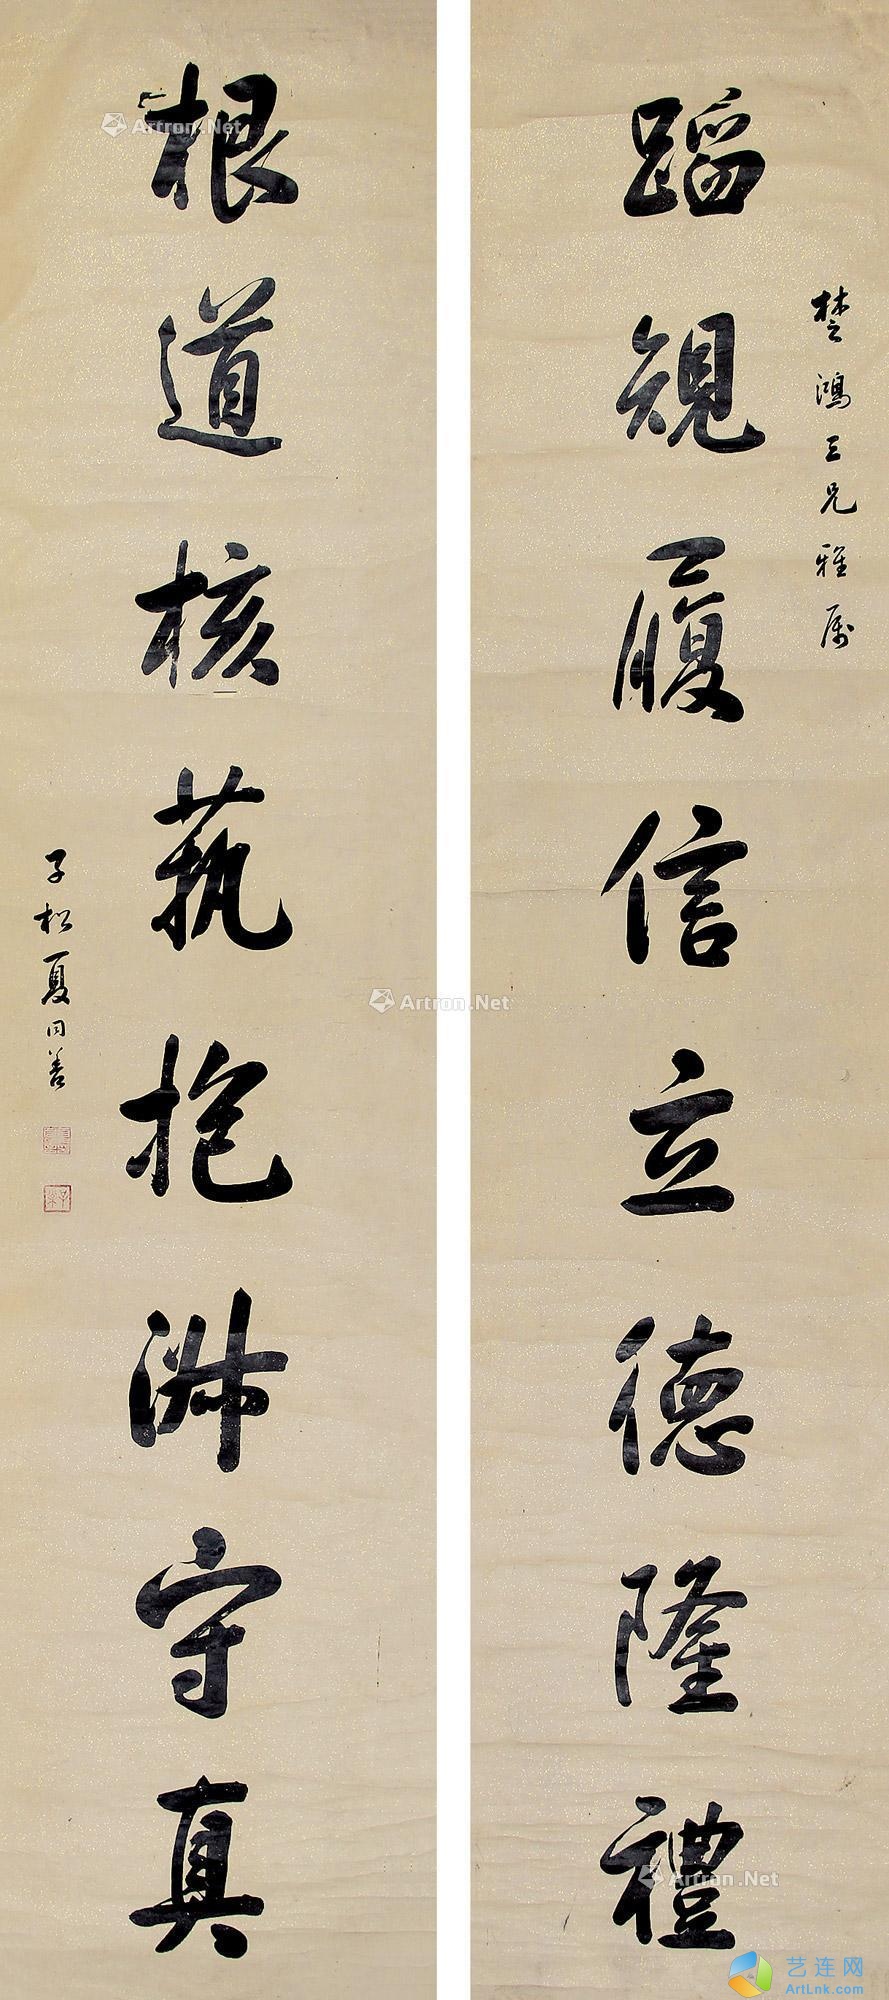 蹈規履信立德隆禮
楚鴻三兄雅属
根道核藝抱淵守真
子松夏同善
Artron.Net
Artron.Net
Artron.Net
艺连网
ArtLnk.com